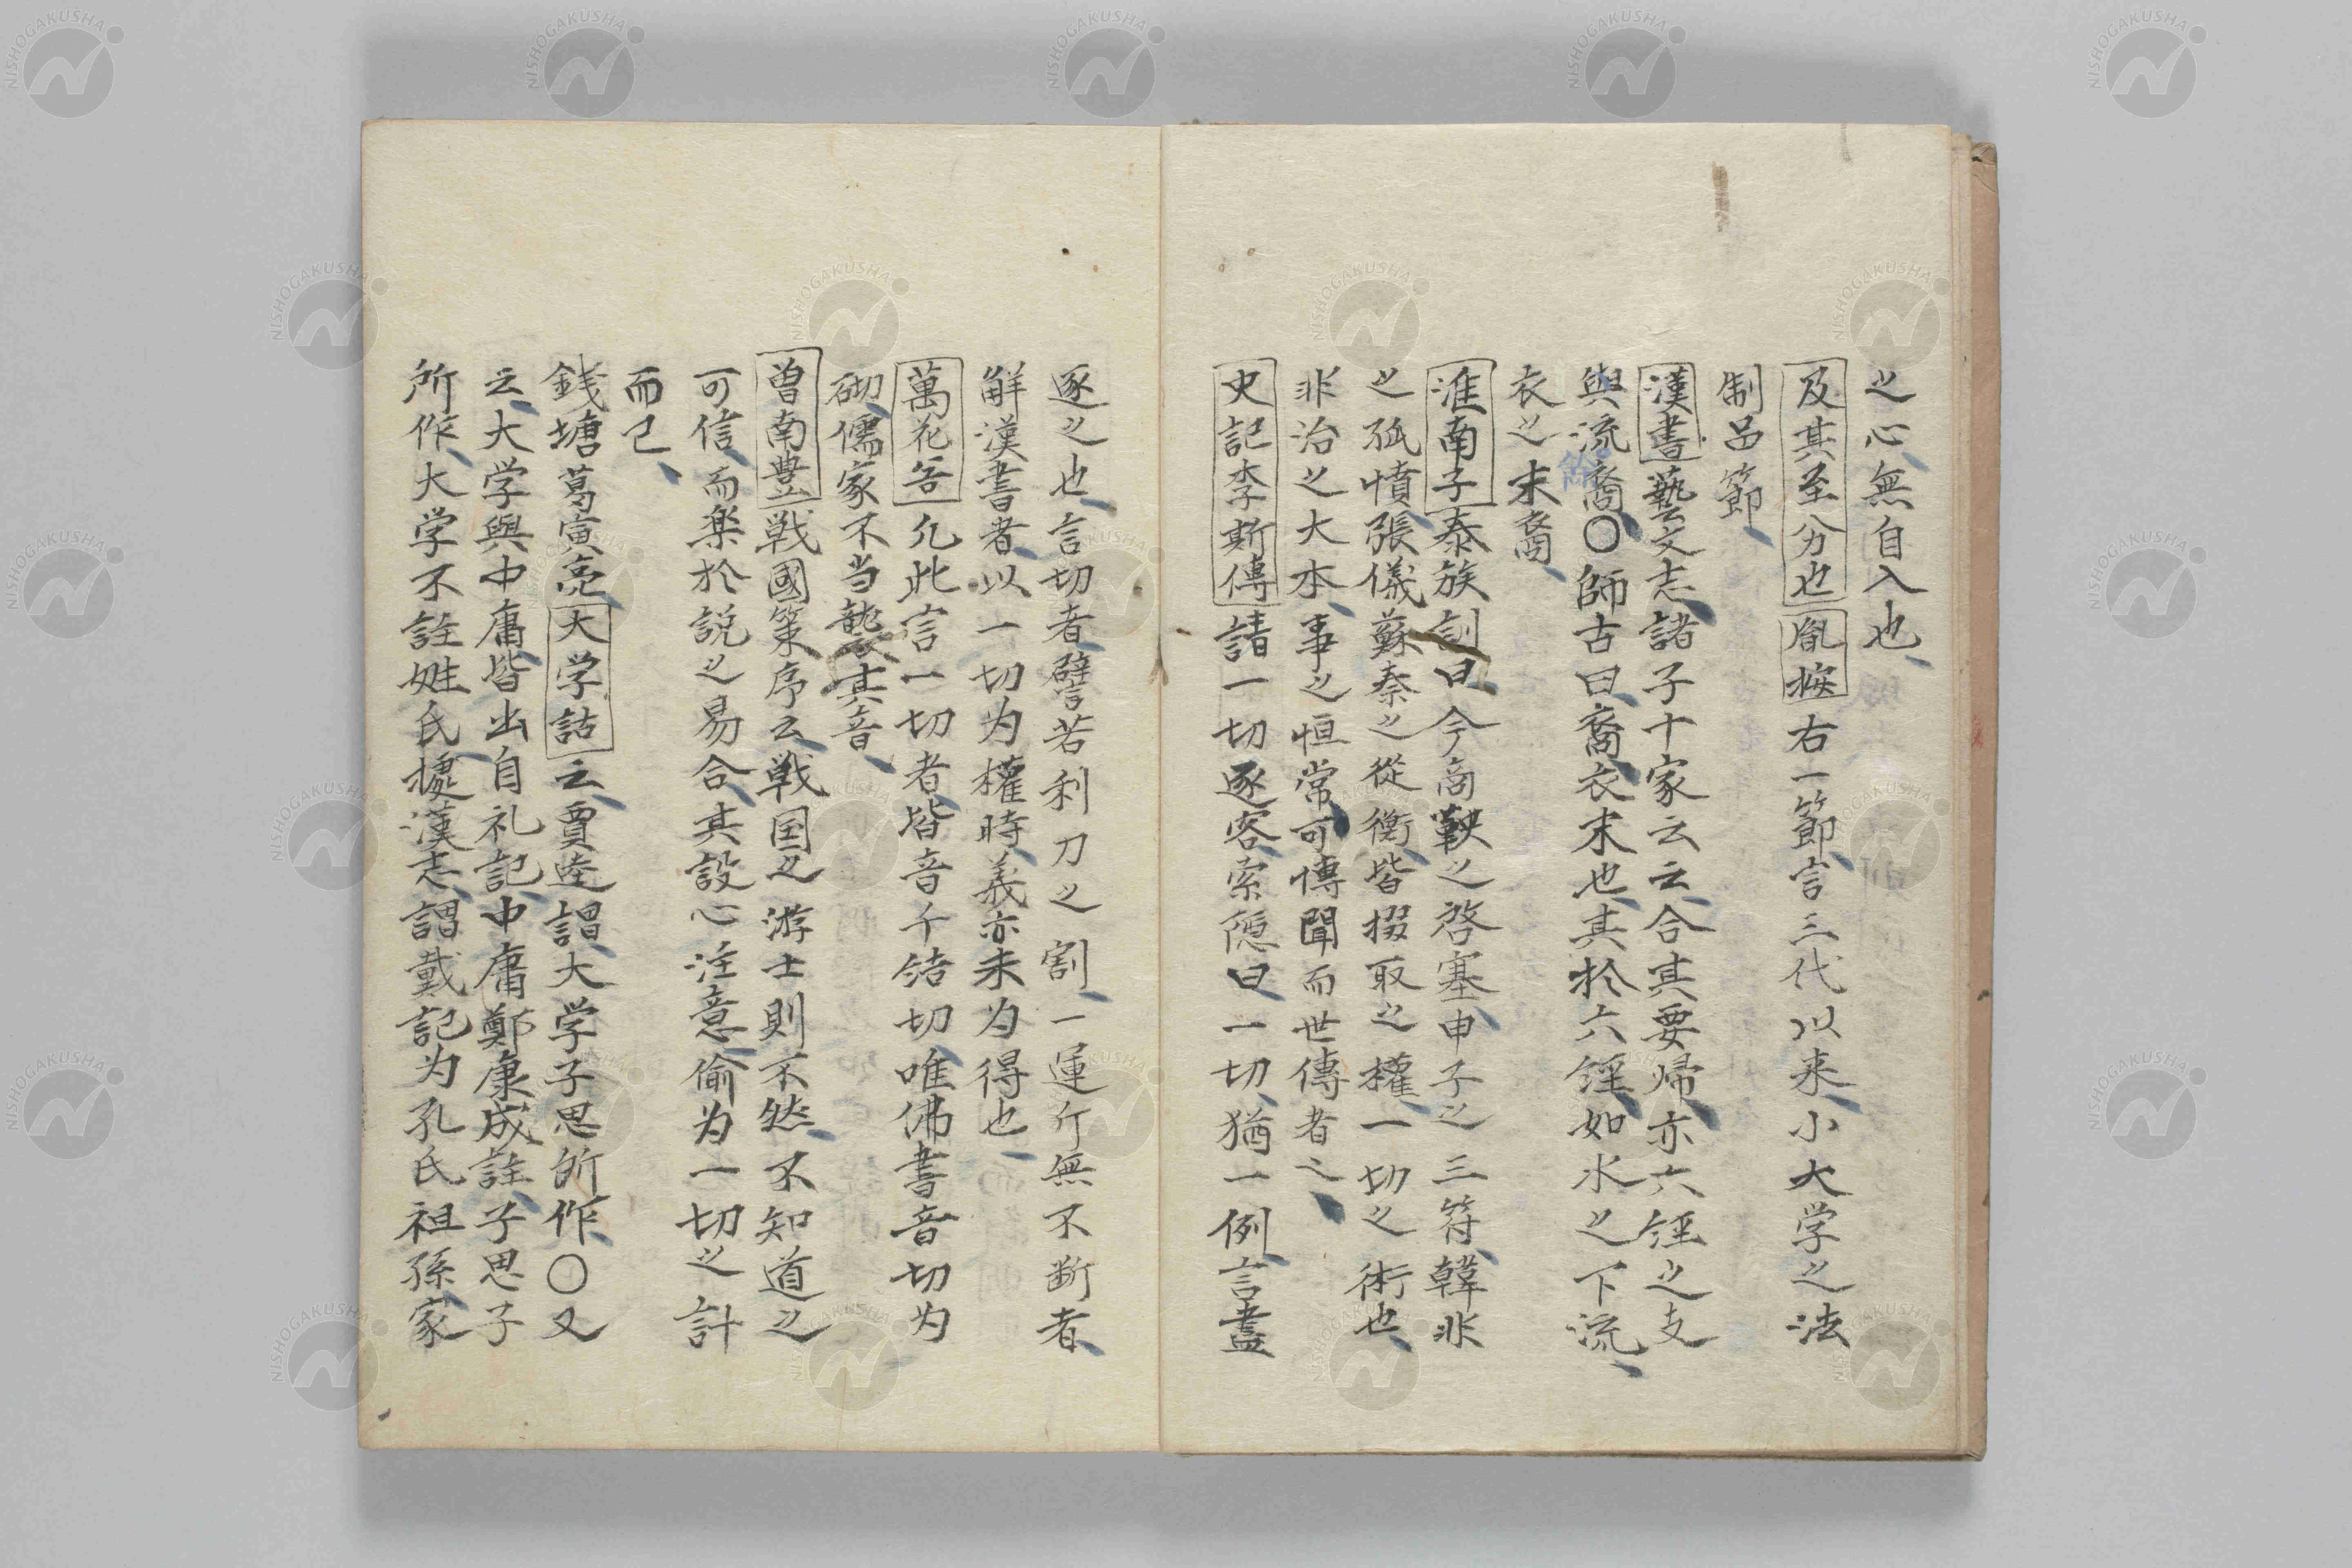 之心無自入也
及其至分也胤按右一節言三代以来小大学之法
制呂節
漢書藝文志諸子十家云云合其要帰亦六経之支
與流裔〇師古曰裔衣末也其於六経如水之下流
衣之末裔
淮南子泰族訓曰今商鞅之啓塞申子之三符韓非
之孤憤張儀蘇秦之從衡皆掇取之權一切之術也
非治之大本事之恒常可傳聞而世傳者之
史記李斯傳請一切逐客索隠曰一切猶一例言盡
逐之也言切者譬若利刀之割一運斤無不断者
解漢書者以一切为權時義亦未为得也
萬花谷凢此言一切者皆音千結切唯佛書音切为
砌儒家不当襲其音
曽南豊戦國策序云戦国之游士則不然不知道之
可信而楽於説之易合其設心注意偷为一切之計
而已
銭塘葛寅亮大学詁云賈逵謂大学子思所作〇又
云大学與中庸皆出自礼記中庸鄭康成註子思子
所作大学不註姓氏據漢志謂戴記为孔氏祖孫家